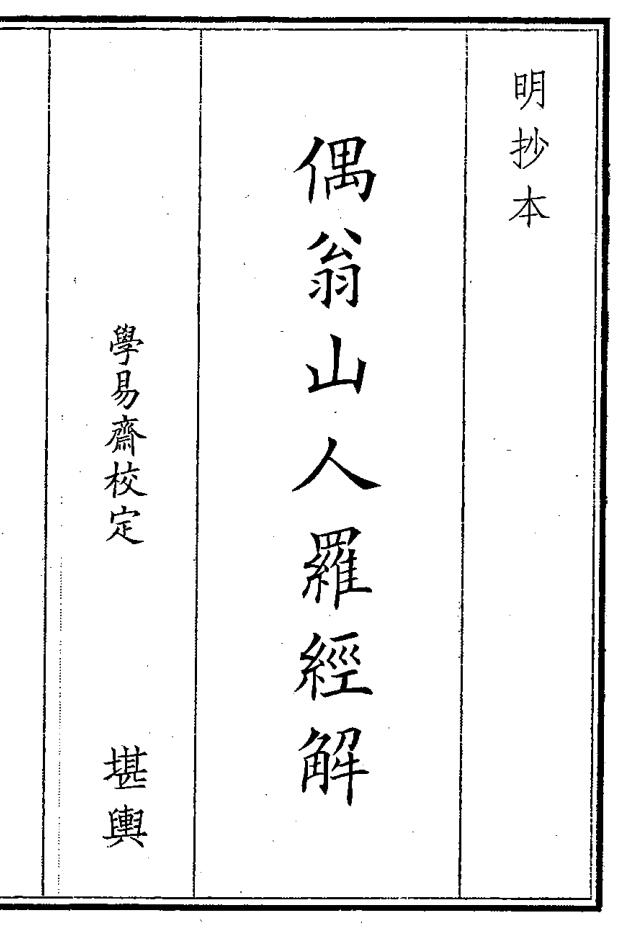 明抄本
偶翁山人羅經解
學易齋校定
堪輿